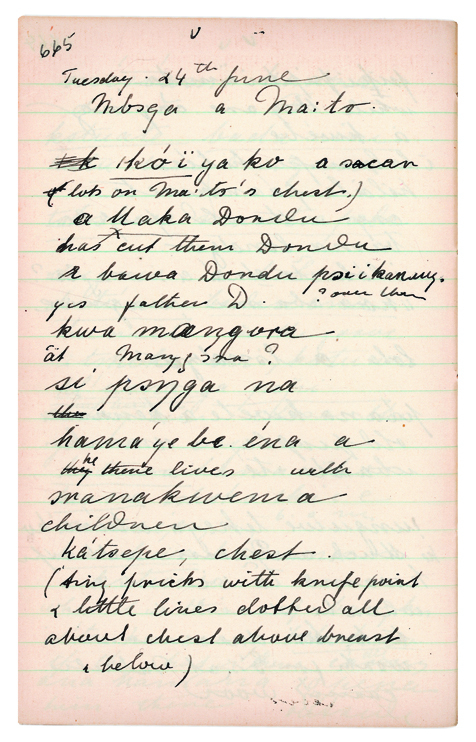 665
Tuesday. 24th June
Mbsga a Ma:to.
ikóï ya ko a sacan
lots on Ma:to's chest.)
a Uaka Dondu
has cut them Dondu
a bawa Dondu psiikaning.
yes father D. ? over them
kwa mangora
at Mangora?
si psnga na
hamáye be. éna a
he there lives with
manakwema
children
kátsepe chest.
(tiny pricks with knife point
& little lines dotted all
about chest above breast
& below)